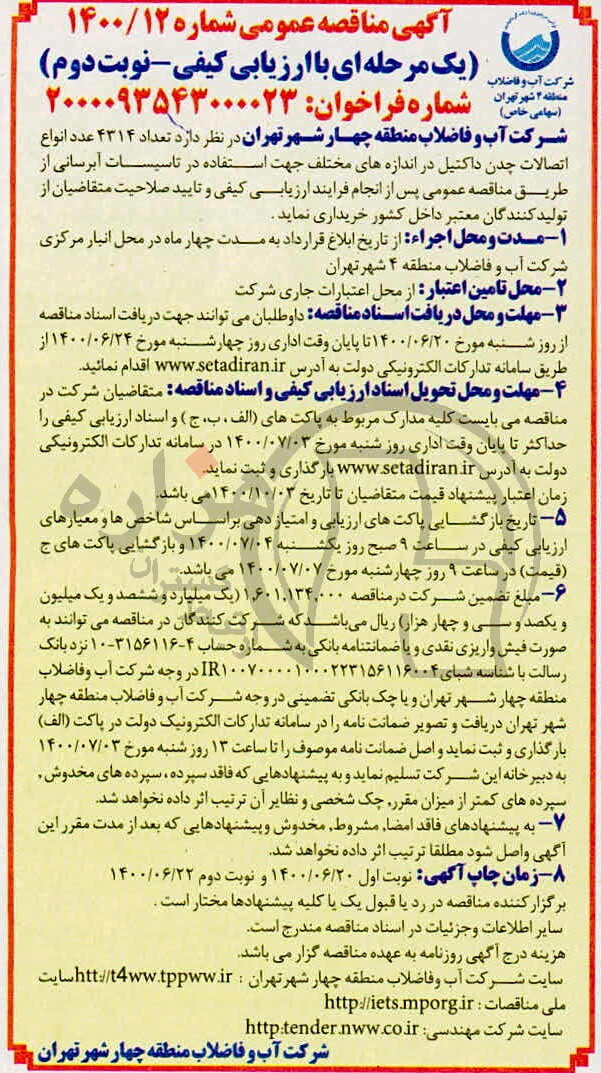 آگهی مناقصه عمومی شماره ۱۴۰۰/۱۲
(یک مرحله ای با ارزیابی کیفی - نوبت دوم)
شماره فراخوان: ۲۰۰۰۰۰۹۳۵۴۳۰۰۰۰۲۳
شرکت آب و فاضلاب
منطقه ۴ شهر تهران
(سهامی خاص)
شرکت آب و فاضلاب منطقه چهار شهر تهران در نظر دارد تعداد ۴۳۱۴ عدد انواع
اتصالات چدن داکتیل در اندازه های مختلف جهت استفاده در تاسیسات آبرسانی از
طریق مناقصه عمومی پس از انجام فرایند ارزیابی کیفی و تایید صلاحیت متقاضیان از
تولیدکنندگان معتبر داخل کشور خریداری نماید .
۱- مدت و محل اجراء: از تاریخ ابلاغ قرارداد به مدت چهار ماه در محل انبار مرکزی
شرکت آب و فاضلاب منطقه ۴ شهر تهران
۲- محل تامین اعتبار: از محل اعتبارات جاری شرکت
۳- مهلت و محل دریافت اسناد مناقصه: داوطلبان می توانند جهت دریافت اسناد مناقصه
از روز شنبه مورخ ۱۴۰۰/۰۶/۲۰ تا پایان وقت اداری روز چهارشنبه مورخ ۱۴۰۰/۰۶/۲۴ از
طریق سامانه تدارکات الکترونیکی دولت به آدرس www.setadiran.ir اقدام نمائید.
۴- مهلت و محل تحویل اسناد ارزیابی کیفی و اسناد مناقصه: متقاضیان شرکت در
مناقصه می بایست کلیه مدارک مربوط به پاکت های (الف ، ب، ج ) و اسناد ارزیابی کیفی را
حداکثر تا پایان وقت اداری روز شنبه مورخ ۱۴۰۰/۰۷/۰۳ در سامانه تدارکات الکترونیکی
دولت به آدرس www.setadiran.ir بارگذاری و ثبت نماید.
زمان اعتبار پیشنهاد قیمت متقاضیان تا تاریخ ۱۴۰۰/۱۰/۰۳ می باشد.
۵- تاریخ بازگشایی پاکت های ارزیابی و امتیاز دهی براساس شاخص ها و معیارهای
ارزیابی کیفی در ساعت ۹ صبح روز یکشنبه ۱۴۰۰/۰۷/۰۴ و بازگشایی پاکت های ج
(قیمت) در ساعت ۹ روز چهارشنبه مورخ ۱۴۰۰/۰۷/۰۷ می باشد.
۶- مبلغ تضمین شرکت در مناقصه ۱,۶۰۱,۱۳۴,۰۰۰ (یک میلیارد و ششصد و یک میلیون
و یکصد و سی و چهار هزار) ریال می باشد که شرکت کنندگان در مناقصه می توانند به
صورت فیش واریزی نقدی و یا ضمانتنامه بانکی به شماره حساب ۴-۳۱۵۶۱۱۶-۱۰ نزد بانک
رسالت با شناسه شبای IR۱۰۰۷۰۰۰۰۱۰۰۰۲۲۳۱۵۶۱۱۶۰۰۴ در وجه شرکت آب و فاضلاب
منطقه چهار شهر تهران و یا چک بانکی تضمینی در وجه شرکت آب و فاضلاب منطقه چهار
شهر تهران دریافت و تصویر ضمانت نامه را در سامانه تدارکات الکترونیک دولت در پاکت (الف)
بارگذاری و ثبت نماید و اصل ضمانت نامه موصوف را تا ساعت ۱۳ روز شنبه مورخ ۱۴۰۰/۰۷/۰۳
به دبیرخانه این شرکت تسلیم نماید و به پیشنهادهایی که فاقد سپرده ، سپرده های مخدوش ,
سپرده های کمتر از میزان مقرر, چک شخصی و نظایر آن ترتیب اثر داده نخواهد شد.
۷- به پیشنهادهای فاقد امضا, مشروط, مخدوش و پیشنهادهایی که بعد از مدت مقرر این
آگهی واصل شود مطلقا ترتیب اثر داده نخواهد شد.
۸- زمان چاپ آگهی: نوبت اول ۱۴۰۰/۰۶/۲۰ و نوبت دوم ۱۴۰۰/۰۶/۲۲
برگزار کننده مناقصه در رد یا قبول یک یا کلیه پیشنهادها مختار است .
سایر اطلاعات و جزئیات در اسناد مناقصه مندرج است.
هزینه درج آگهی روزنامه به عهده مناقصه گزار می باشد.
سایت شرکت آب و فاضلاب منطقه چهار شهر تهران : htt://t4ww.tppww.ir سایت
ملی مناقصات : http://iets.mporg.ir
سایت شرکت مهندسی: http:tender.nww.co.ir
شرکت آب و فاضلاب منطقه چهار شهر تهران